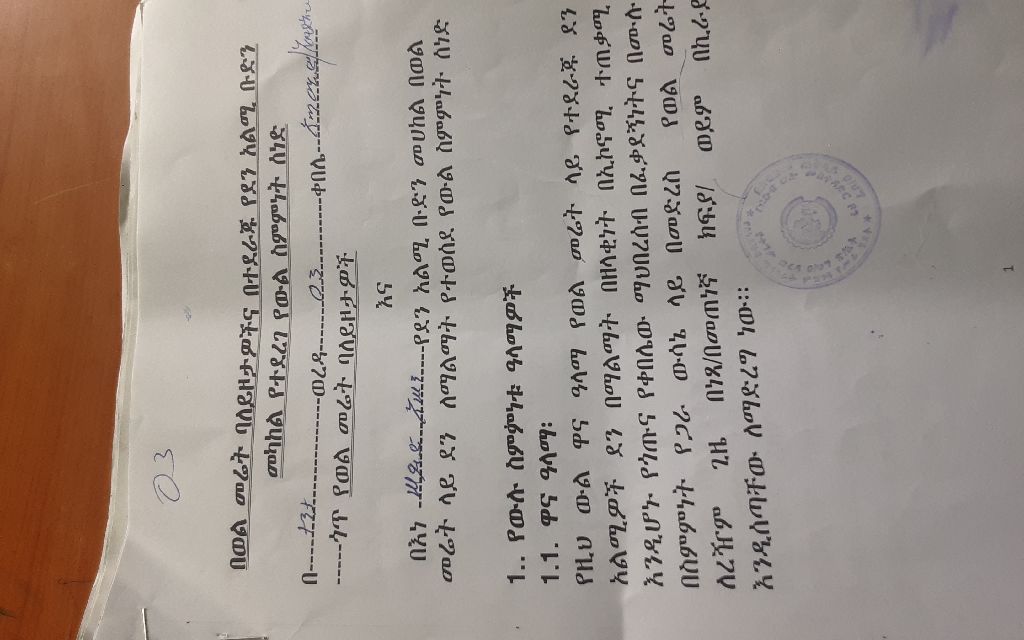 03
በወል መሬት ባለይዞታዎችና በተደራጁ የደን አልሚ ቡድን
መካከል የተደረገ የውል ስምምነት ሰነድ
በ----------ወረዳ------03---------ቀበሌ---
-----ጎጥ የወል መሬት ባለይዞታዎች
እና
በእነ ------የደን አልሚ ቡድን መሀከል በወል
መሬት ላይ ደን ለማልማት የተወሰደ የውል ስምምነት ሰነድ
1.. የውሉ ስምምነቱ ዓላማዎች
1.1. ዋና ዓላማ፡
የዚህ ውል ዋና ዓላማ የወል መሬት ላይ የተደራጁ ደን
አልሚዎች ደን በማልማት በዘላቂነት በኢኮኖሚ ተጠቃሚ
እንዲሆኑ የጎጡና የቀበሌው ማህበረሰብ በፈቃደኝነትና በሙሉ
በስምምነት የጋራ ውሳኔ ላይ በመድረስ የወል መሬት
ለረዥም ጊዜ በነጻ/በመጠነኛ ክፍያ/ ወይም በኪራይ
እንዲሰጣቸው ለማድረግ ነው፡፡
1